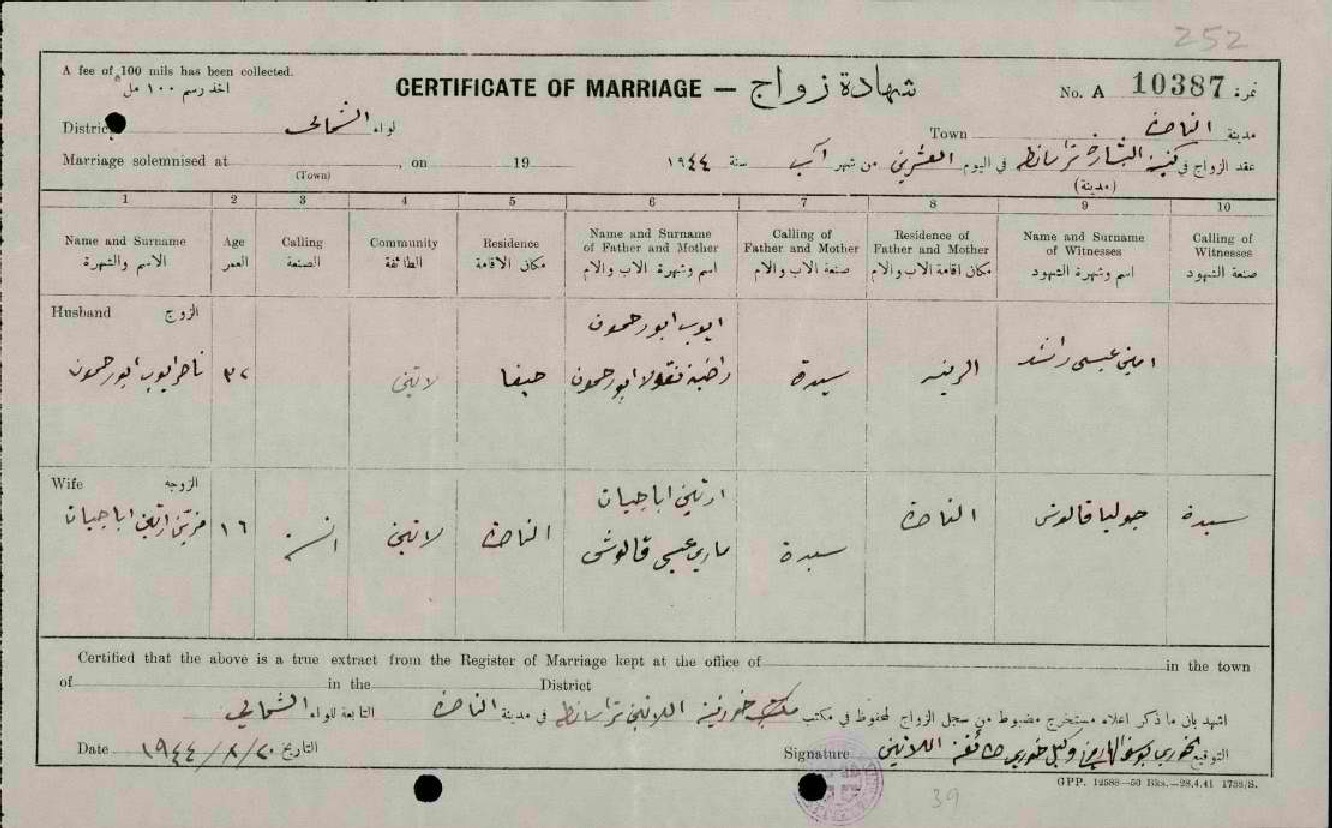 252
A fee of 100 mils has been collected.
اخذ رسم ١٠٠ مل
CERTIFICATE OF MARRIAGE — شهادة زواج
No. A 10387 نمرة
District الشمالي لواء
Town الناصرة مدينة
Marriage solemnised at , on 19
(Town)
عقد الزواج في كنيسة البشارة تراسانطة في اليوم العشرين من شهر آب سنة ١٩٤٤
(مدينة)
1 2 3 4 5 6 7 8 9 10
Name and Surname
الاسم والشهرة
Age
العمر
Calling
الصنعة
Community
الطائفة
Residence
مكان الاقامة
Name and Surname
of Father and Mother
اسم وشهرة الاب والام
Calling of
Father and Mother
صنعة الاب والام
Residence of
Father and Mother
مكان اقامة الاب والام
Name and Surname
of Witnesses
اسم وشهرة الشهود
Calling of
Witnesses
صنعة الشهود
Husband الزوج
ايوب ابو رحمون
ابو رحمون ٣٢ لاتيني حيفا راضية نقولا ابو رحمون سيدة الرينه امين عيسى راشد
Wife الزوجه
اباجيات ١٦ انسة لاتيني الناصرة اباجيات
ماري عيسى قالوش سيدة الناصرة جوليا قالوش سيدة
Certified that the above is a true extract from the Register of Marriage kept at the office of in the town
of in the District
اشهد بان ما ذكر اعلاه مستخرج مضبوط من سجل الزواج المحفوظ في مكتب خورنية اللاتين تراسانطة في مدينة الناصرة التابعة للواء الشمالي
Date ١٩٤٤/٨/٢٠ التاريخ
Signature خوري طائفة اللاتين التوقيع
GPP. 12588—50 Bks.—28.4.41 1735/S.
39